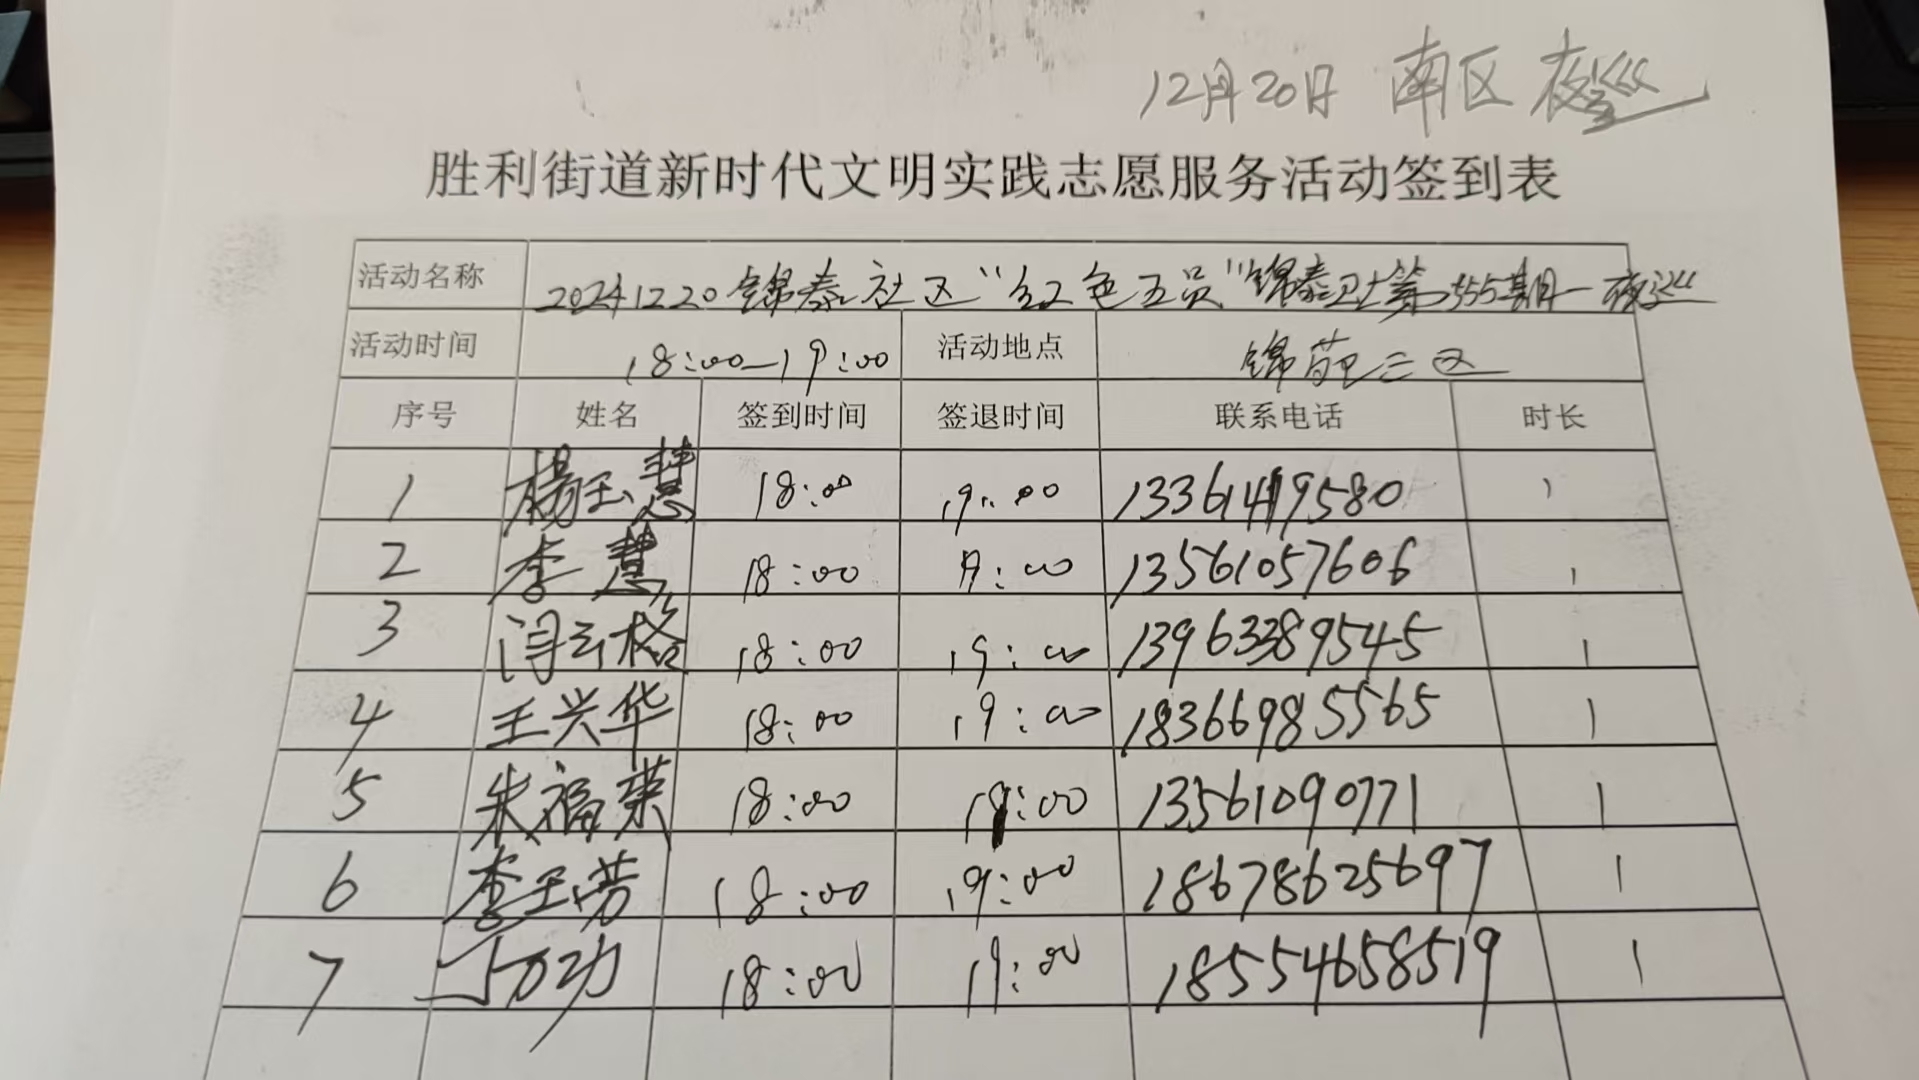 12月20日 南区 夜巡
胜利街道新时代文明实践志愿服务活动签到表
活动名称 20241220锦泰社区“红色五员”锦泰卫士第555期—夜巡
活动时间 18:00—19:00 活动地点 锦苑三区
序号 姓名 签到时间 签退时间 联系电话 时长
1 杨玉慧 18:00 19:00 13361419580 1
2 李慧 18:00 19:00 13561057606 1
3 闫云格 18:00 19:00 13963389545 1
4 王兴华 18:00 19:00 18366985565 1
5 朱福荣 18:00 19:00 13561090771 1
6 李玉芳 18:00 19:00 18678625697 1
7 马万功 18:00 19:00 18554658519 1